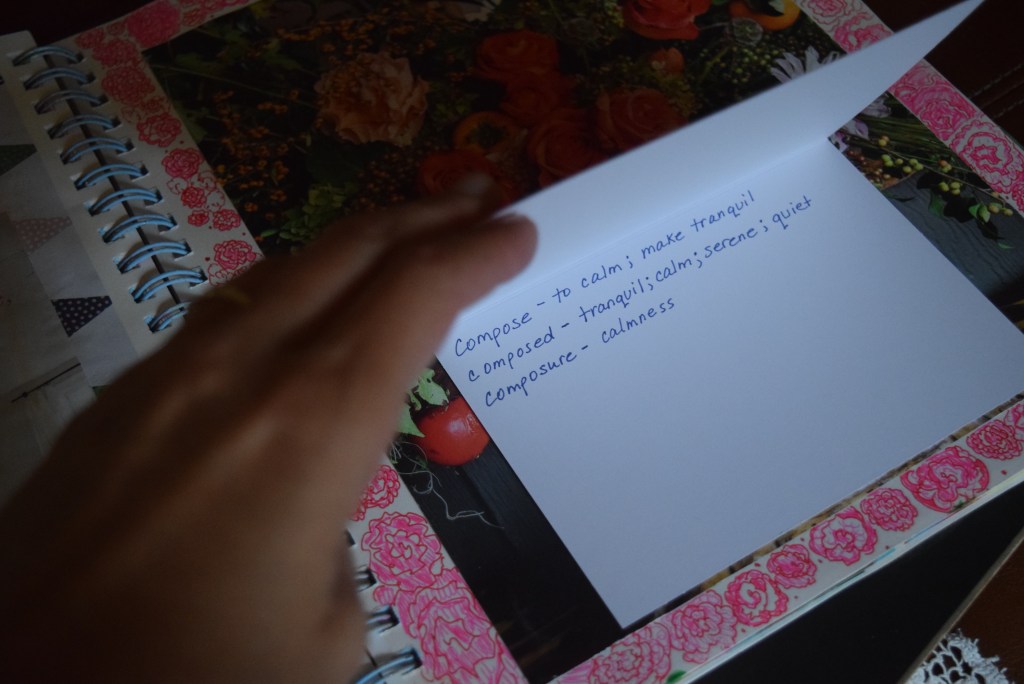 compose - to calm; make tranquil
composed - tranquil; calm; serene; quiet
composure - calmness